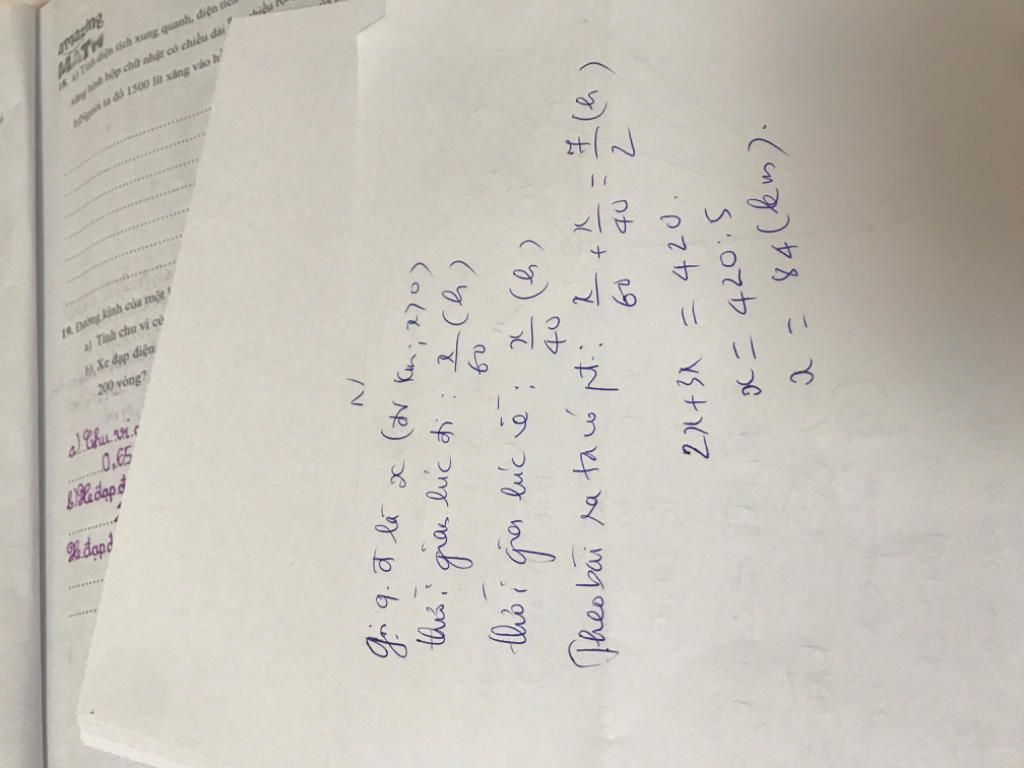 amazing
MATH
18. a) Tính diện tích xung quanh, diện tích
xăng hình hộp chữ nhật có chiều dài
b) Người ta đổ 1500 lít xăng vào
19. Đường kính của một
a) Tính chu vi
b) Xe đạp điện
200 vòng?
a) Chu vi
0,65
b) Xe đạp đ
Xe đạp đ
Gọi q.đ là x (đv km; x>0)
thời gian lúc đi : x/60 (h)
thời gian lúc về : x/40 (h)
Theo bài ra ta có pt: x/60 + x/40 = 7/2 (h)
2x + 3x = 420.
x = 420 : 5
x = 84 (km).